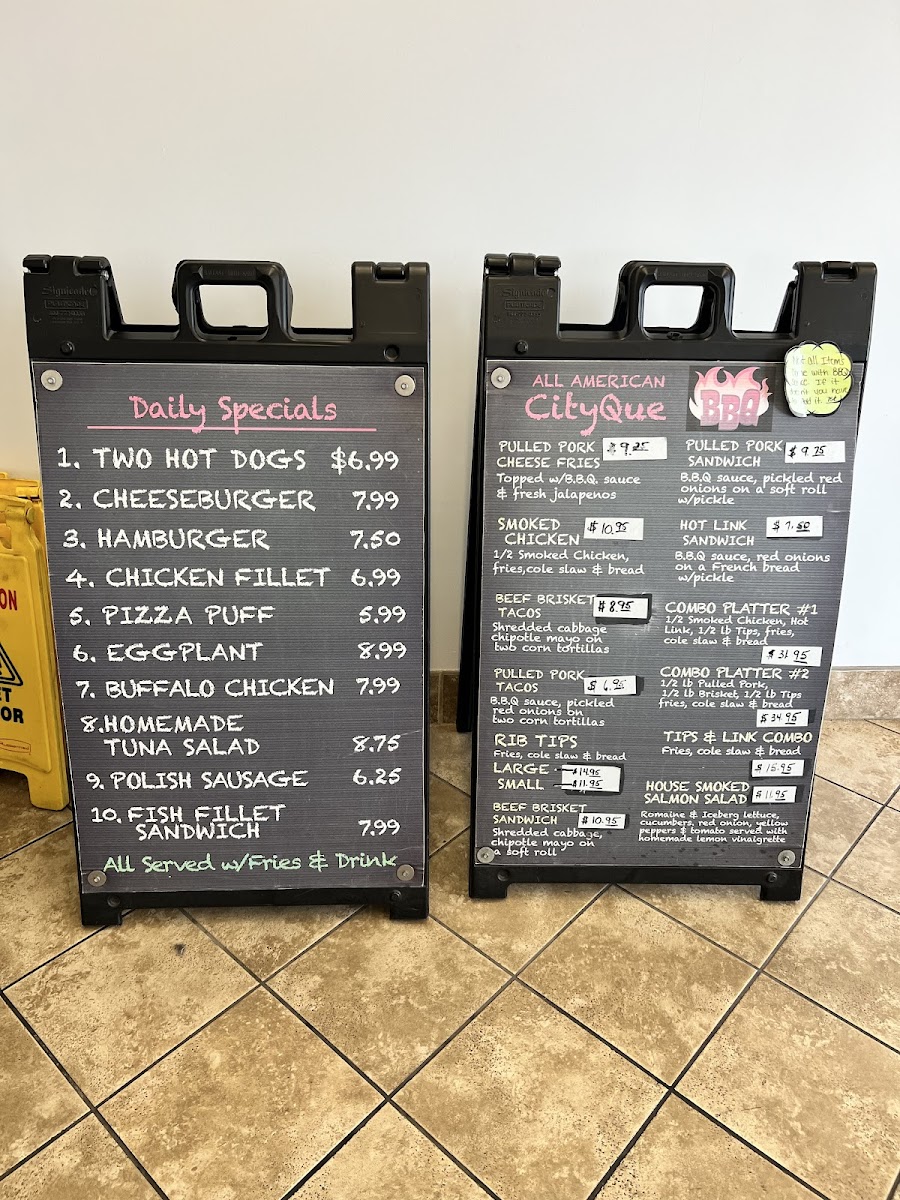 Signicade
Daily Specials
1. TWO HOT DOGS $6.99
2. CHEESEBURGER 7.99
3. HAMBURGER 7.50
4. CHICKEN FILLET 6.99
5. PIZZA PUFF 5.99
6. EGGPLANT 8.99
7. BUFFALO CHICKEN 7.99
8. HOMEMADE
TUNA SALAD 8.75
9. POLISH SAUSAGE 6.25
10. FISH FILLET
SANDWICH 7.99
All Served w/Fries & Drink
Signicade
ALL AMERICAN
CityQue
BBQ
Not all Items
with BBQ
If it
PULLED PORK
CHEESE FRIES
Topped w/B.B.Q. sauce
& fresh jalapenos
SMOKED
CHICKEN $10.95
1/2 Smoked Chicken,
fries,cole slaw & bread
BEEF BRISKET $8.95
TACOS
Shredded cabbage
chipotle mayo on
two corn tortillas
PULLED PORK
TACOS $6.95
B.B.Q sauce, pickled
red onions on
two corn tortillas
RIB TIPS
Fries, cole slaw & bread
LARGE $14.95
SMALL $11.95
BEEF BRISKET
SANDWICH $10.95
Shredded cabbage,
chipotle mayo on
a soft roll
PULLED PORK
SANDWICH
B.B.Q sauce, pickled red
onions on a soft roll
w/pickle
HOT LINK
SANDWICH $7.50
B.B.Q sauce, red onions
on a French bread
w/pickle
COMBO PLATTER #1
1/2 Smoked Chicken, Hot
Link, 1/2 lb Tips, fries,
cole slaw & bread
$31.95
COMBO PLATTER #2
1/2 lb Pulled Pork,
1/2 lb Brisket, 1/2 lb Tips
fries, cole slaw & bread
$34.95
TIPS & LINK COMBO
Fries, cole slaw & bread
$15.95
HOUSE SMOKED
SALMON SALAD $11.95
Romaine & Iceberg lettuce,
cucumbers, red onion, yellow
peppers & tomato served with
homemade lemon vinaigrette